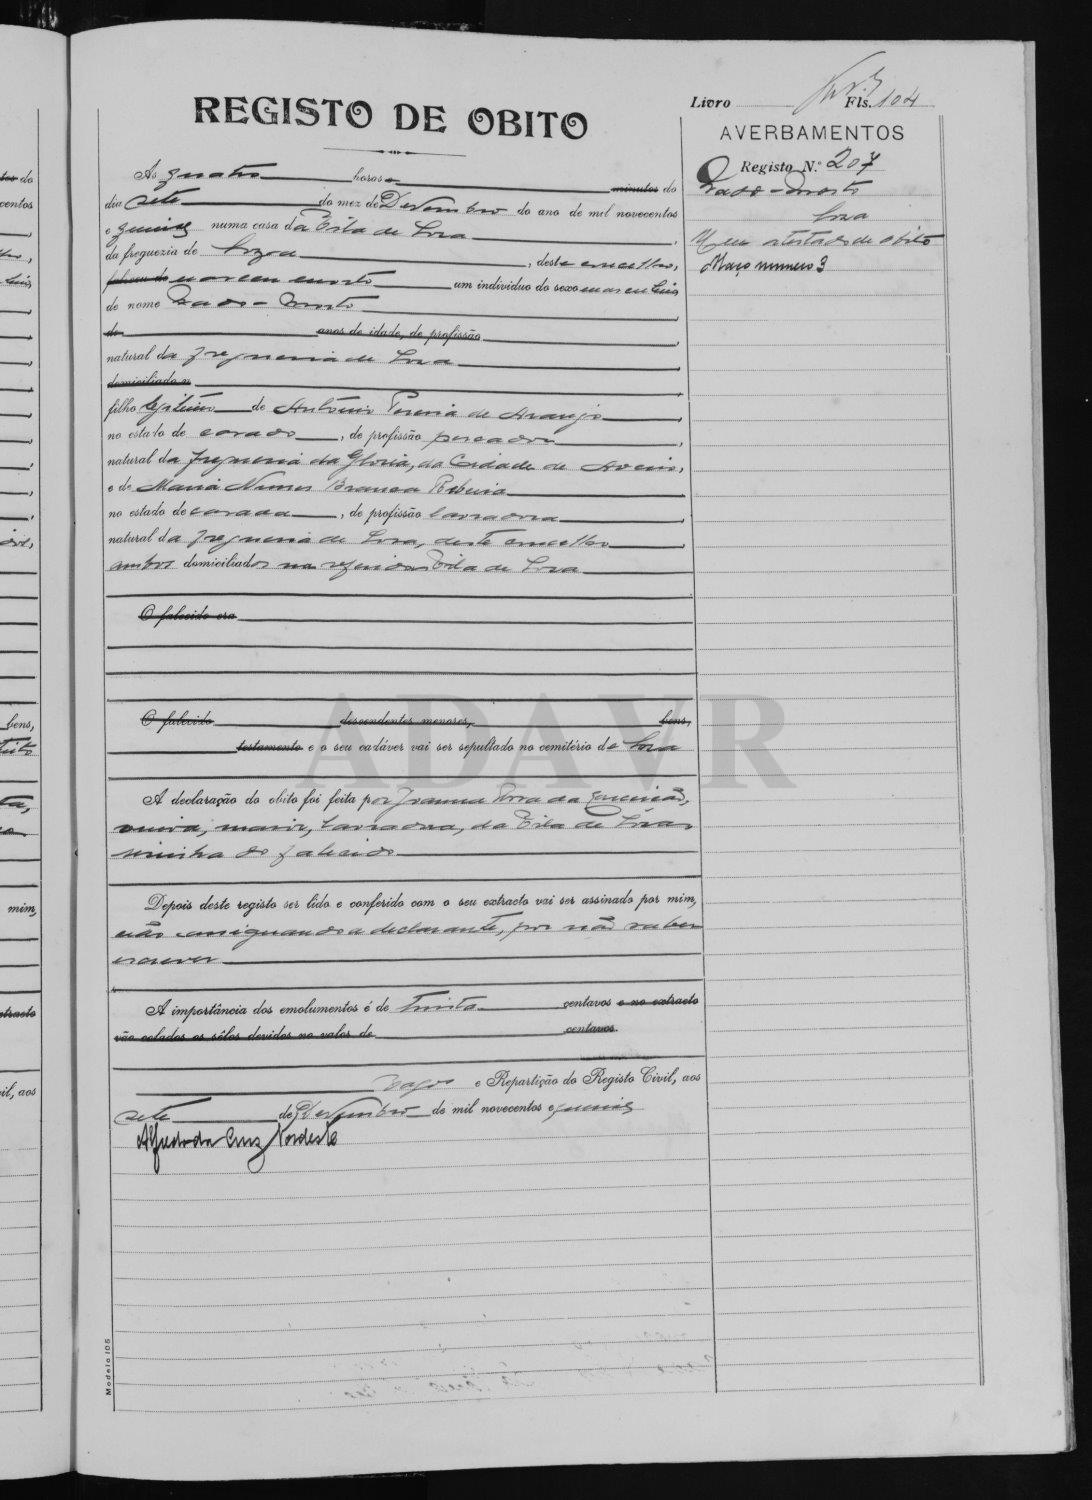 Livro Fls. 104
REGISTO DE OBITO
AVERBAMENTOS
Registo N.º 207
Nado-Morto
Soza
Um atestado de obito
Maço numero 3
Ás quatro horas e minutos do
dia sete do mez de Dezembro do ano de mil novecentos
e quinze numa casa da Vila de Soza,
da freguezia de Soza, deste concelho,
faleceu de nasceu morto um individuo do sexo masculino
de nome Nado-Morto,
de anos de idade, de profissão,
natural da freguesia de Soza,
domiciliado n
filho legitimo de António Pereira de Araujo,
no estado de casado, de profissão pescador,
natural da freguesia da Gloria, da Cidade de Aveiro,
e de Maria Nunes Branca
no estado de casada, de profissão lavradora,
natural da freguesia de Soza, deste concelho,
ambos domiciliados na referida Vila de Soza
O falecido era
O falecido descendentes menores, bens,
testamento e o seu cadáver vai ser sepultado no cemitério de Soza
A declaração do obito foi feita por Joanna Rosa da Conceição,
viuva, maior, lavradora, da Vila de Soza,
visinha do falecido
Depois deste registo ser lido e conferido com o seu extracto vai ser assinado por mim,
não assignando a declarante, por não saber
escrever
A importância dos emolumentos é de trinta centavos e no extracto
vão colados os sêlos devidos no valor de centavos.
Vagos e Repartição do Registo Civil, aos
sete de Dezembro de mil novecentos e quinze
Alfredo da Cruz Nordeste
ADAVR
Modelo 105